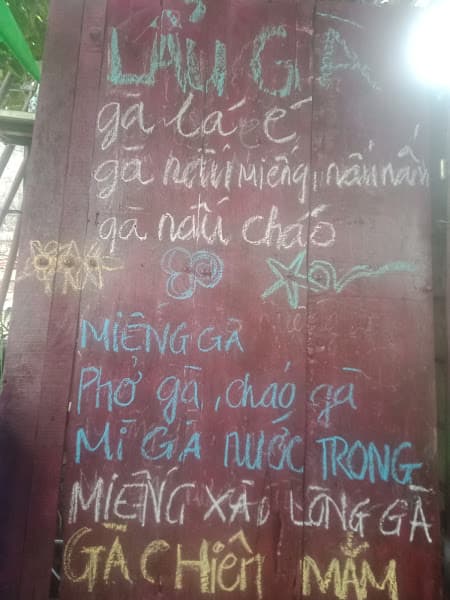 LẨU GÀ
gà lá é
gà nấu miếng, nấu nấm
gà nấu cháo
MIẾNG GÀ
Phở gà, cháo gà
MÌ GÀ NƯỚC TRONG
MIẾNG XÀO LÒNG GÀ
GÀ CHiên MẮM